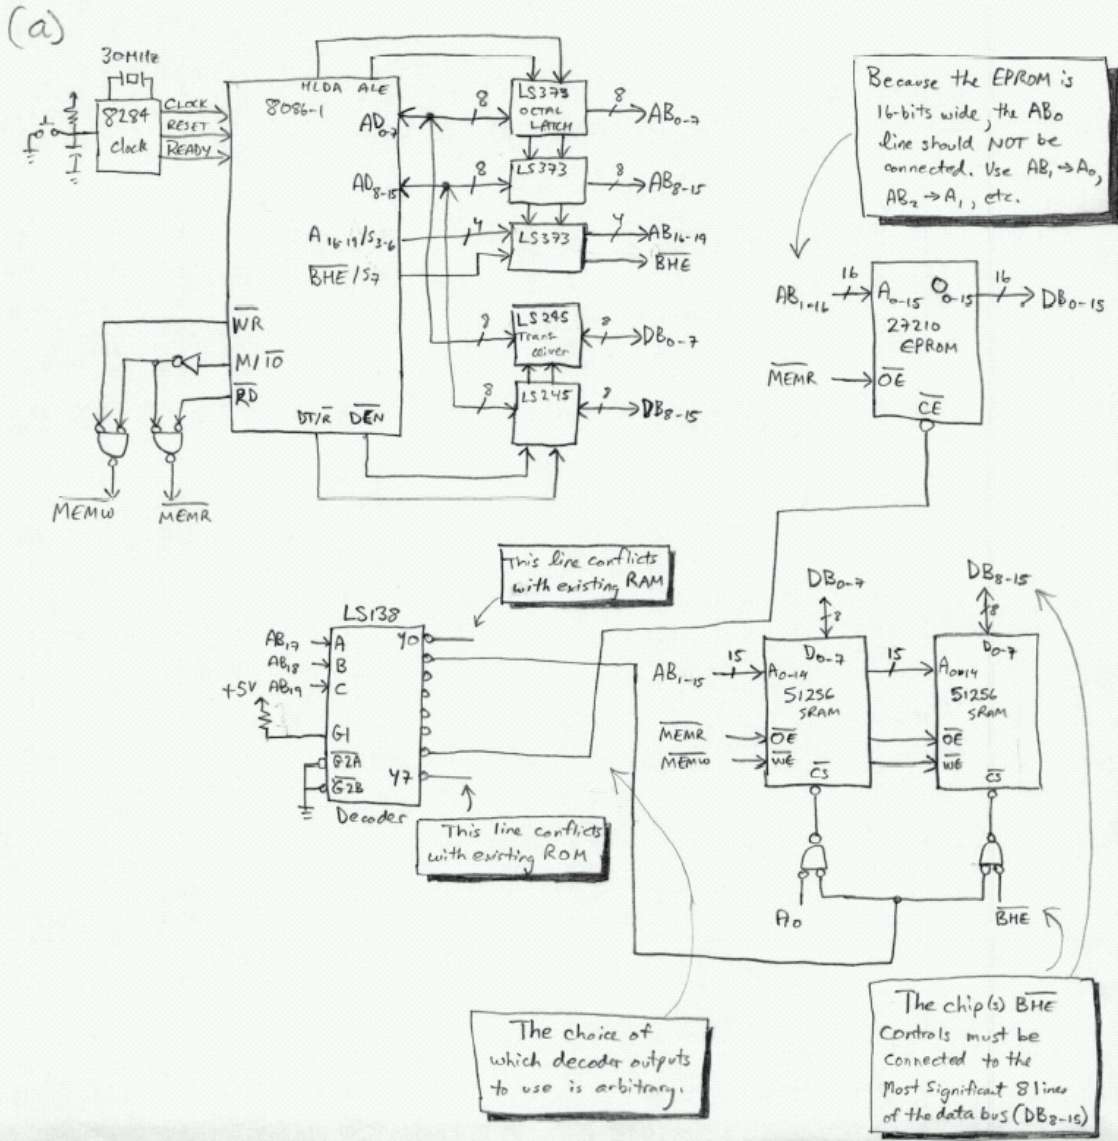 (a)
30MHz
8284
clock
CLOCK
RESET
READY
HLDA ALE
8086-1
AD0-7
AD8-15
A16-19/S3-6
BHE/S7
WR
M/IO
RD
DT/R DEN
MEMW MEMR
LS373
OCTAL
LATCH
8 8 AB0-7
LS373
8 8 AB8-15
LS373
4 4 AB16-19
BHE
LS245
Trans-
ceiver
8 8 DB0-7
LS245
8 8 DB8-15
Because the EPROM is
16-bits wide, the AB0
line should NOT be
connected. Use AB1→A0,
AB2→A1, etc.
AB1-16 16 A0-15 O0-15 16 DB0-15
27210
EPROM
MEMR OE
CE
This line conflicts
with existing RAM
LS138
AB17 A Y0
AB18 B
AB19 C
+5V
G1
G2A
G2B Y7
Decoder
This line conflicts
with existing ROM
DB0-7
8
DB8-15
8
AB1-15 15 A0-14 D0-7
51256
SRAM
MEMR OE
MEMW WE
CS
15 A0-14 D0-7
51256
SRAM
OE
WE
CS
A0
BHE
The choice of
which decoder outputs
to use is arbitrary.
The chip(s) BHE
Controls must be
connected to the
Most Significant 8 lines
of the data bus (DB8-15)